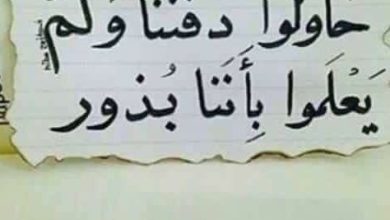 حَاوَلُوا دَفْنَنَا وَلَمْ
يَعْلَمُوا بِأَنَنَا بُذُور